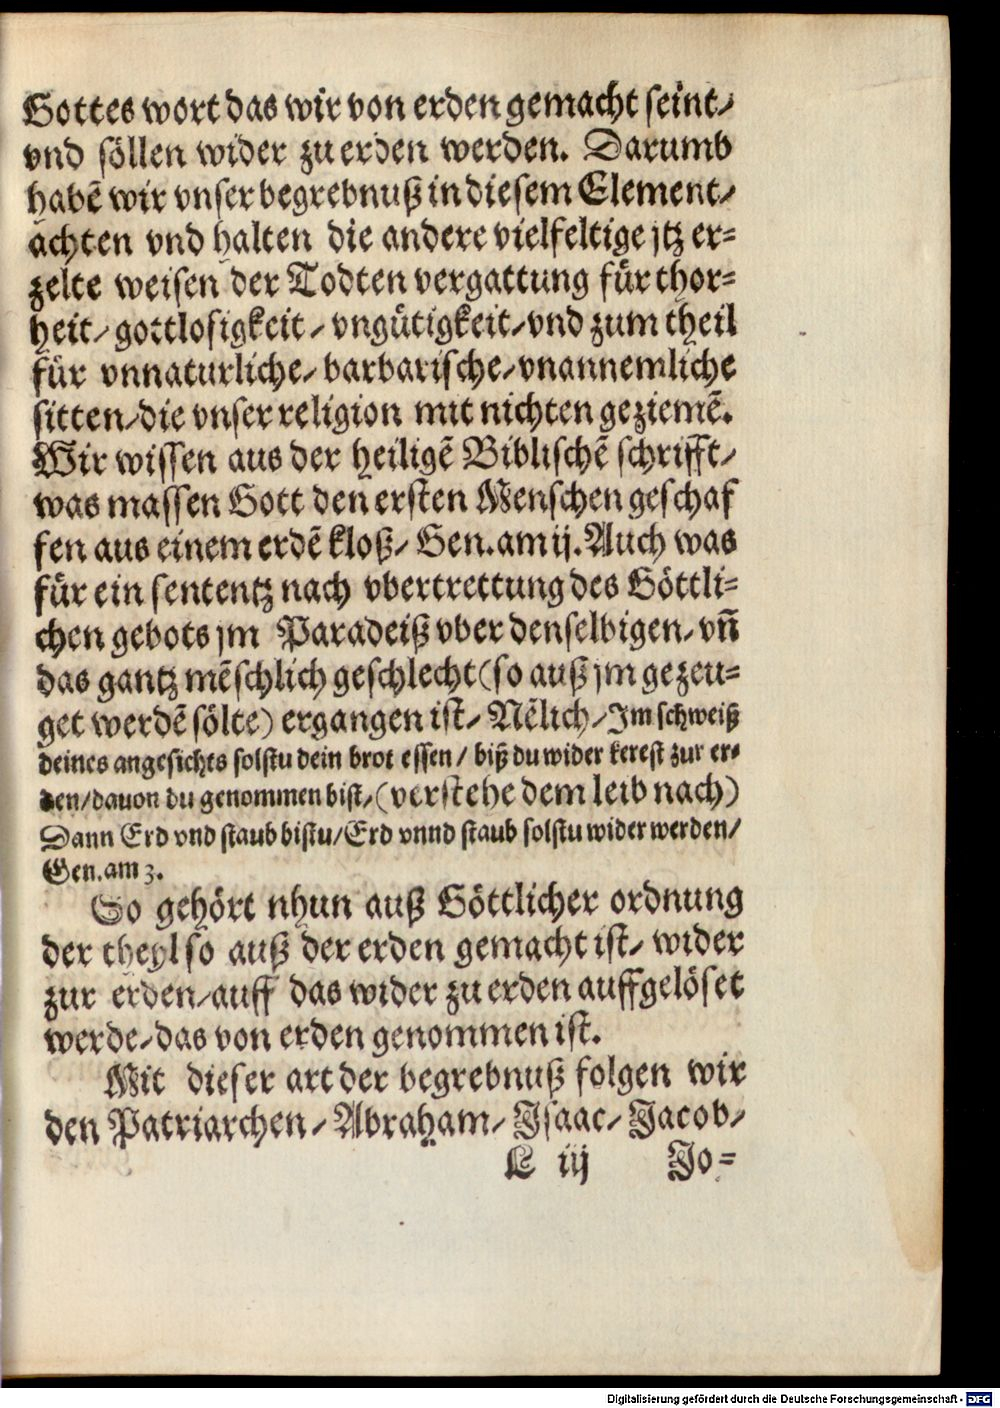 Gottes wort das wir von erden gemacht seint/
vnd söllen wider zu erden werden. Darumb
habẽ wir vnser begrebnuß in diesem Element/
achten vnd halten die andere vielfeltige jtz er=
zelte weisen der Todten vergattung für thor=
heit/ gottlosigkeit/ vngütigkeit/ vnd zum theil
für vnnaturliche/ barbarische/ vnannemliche
sitten/ die vnser religion mit nichten geziemẽ.
Wir wissen aus der heiligẽ Biblischẽ schrifft/
was massen Gott den ersten Menschen geschaf
fen aus einem erdẽ kloß/ Gen. am ij. Auch was
für ein sententz nach vbertrettung des Göttli=
chen gebots jm Paradeiß vber denselbigen/ vñ
das gantz mẽschlich geschlecht (so auß jm gezeu=
get werdẽ sölte) ergangen ist/ Nẽlich/ Im schweiß
deines angesichts solstu dein brot essen/ biß du wider kerest zur er=
den/ dauon du genommen bist/ (verstehe dem leib nach)
Dann Erd vnd staub bistu/ Erd vnnd staub solstu wider werden/
Gen. am 3.
So gehört nhun auß Göttlicher ordnung
der theyl so auß der erden gemacht ist/ wider
zur erden/ auff das wider zu erden auffgelöset
werde/ das von erden genommen ist.
Mit dieser art der begrebnuß folgen wir
den Patriarchen/ Abraham/ Isaac/ Jacob/
L iij Jo=
Digitalisierung gefördert durch die Deutsche Forschungsgemeinschaft - DFG